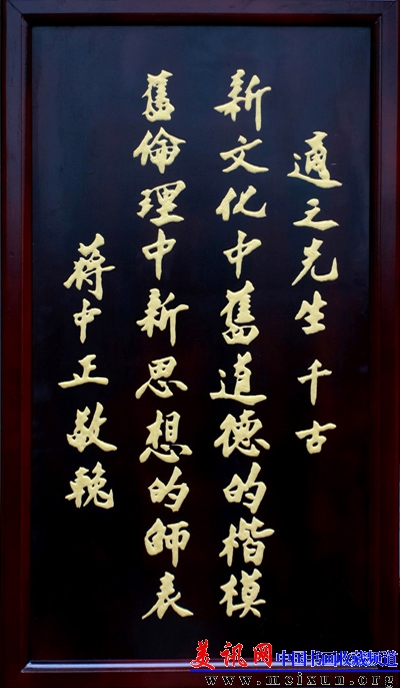 適之先生千古
新文化中舊道德的楷模
舊倫理中新思想的師表
蔣中正敬輓
美讯网 中国书画收藏频道
www.meixun.org